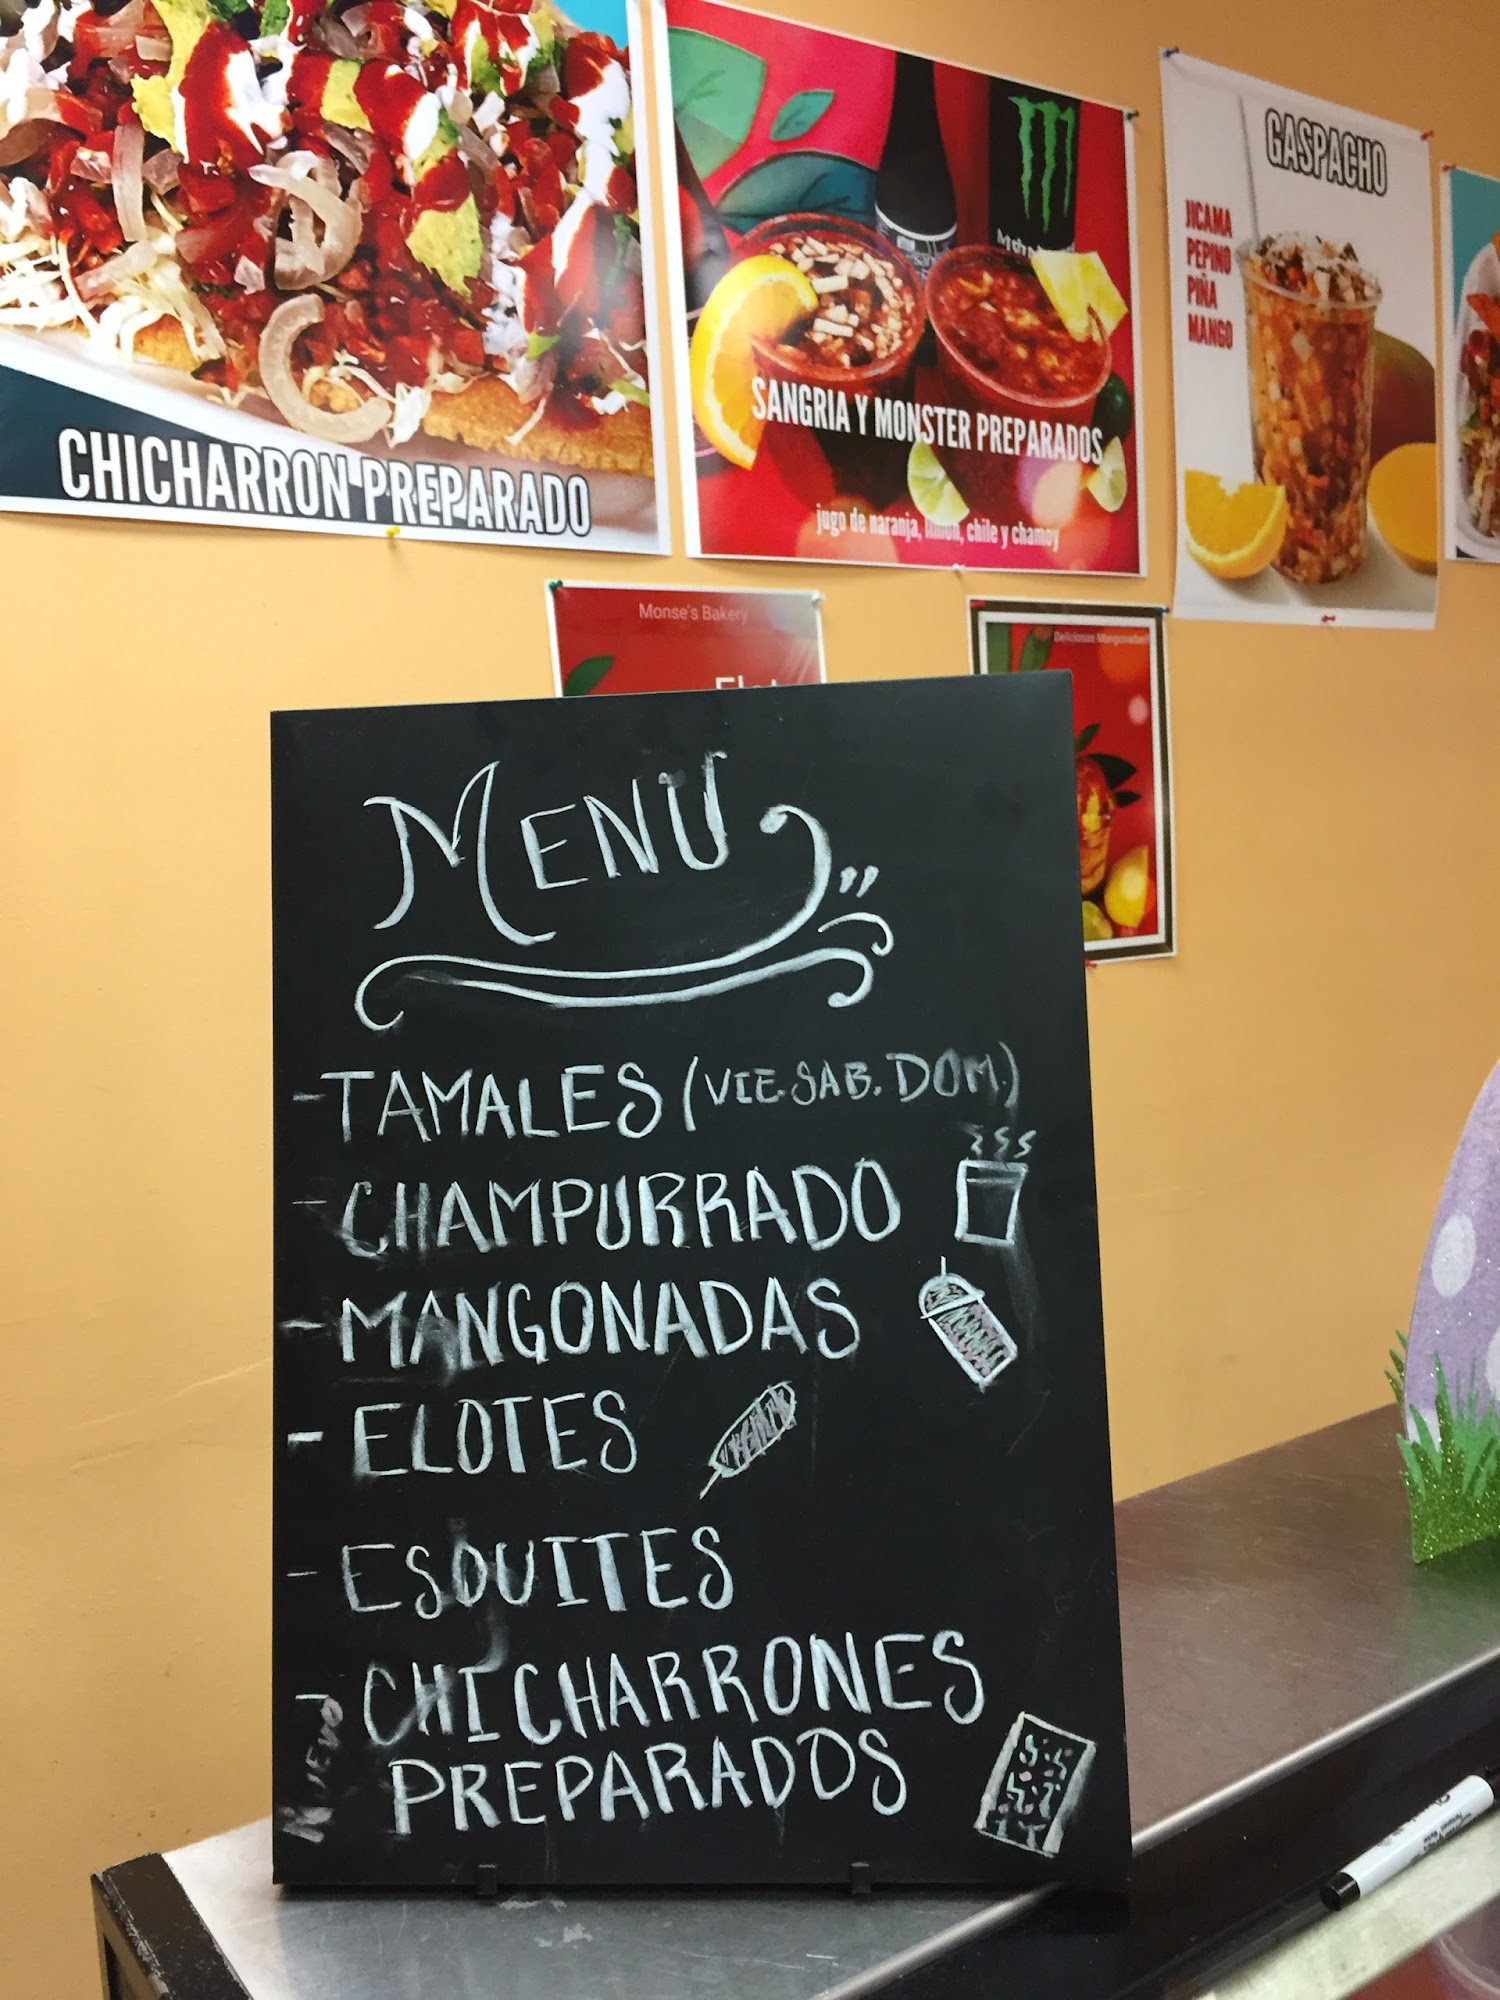 CHICHARRON PREPARADO
SANGRIA Y MONSTER PREPARADOS
jugo de naranja, limón, chile y chamoy
GASPACHO
JICAMA
PEPINO
PIÑA
MANGO
Monse's Bakery
Deliciosas Mangonadas
MENÚ
- TAMALES (VIE. SAB. DOM.)
- CHAMPURRADO
- MANGONADAS
- ELOTES
- ESQUITES
NUEVO
CHICHARRONES
PREPARADOS